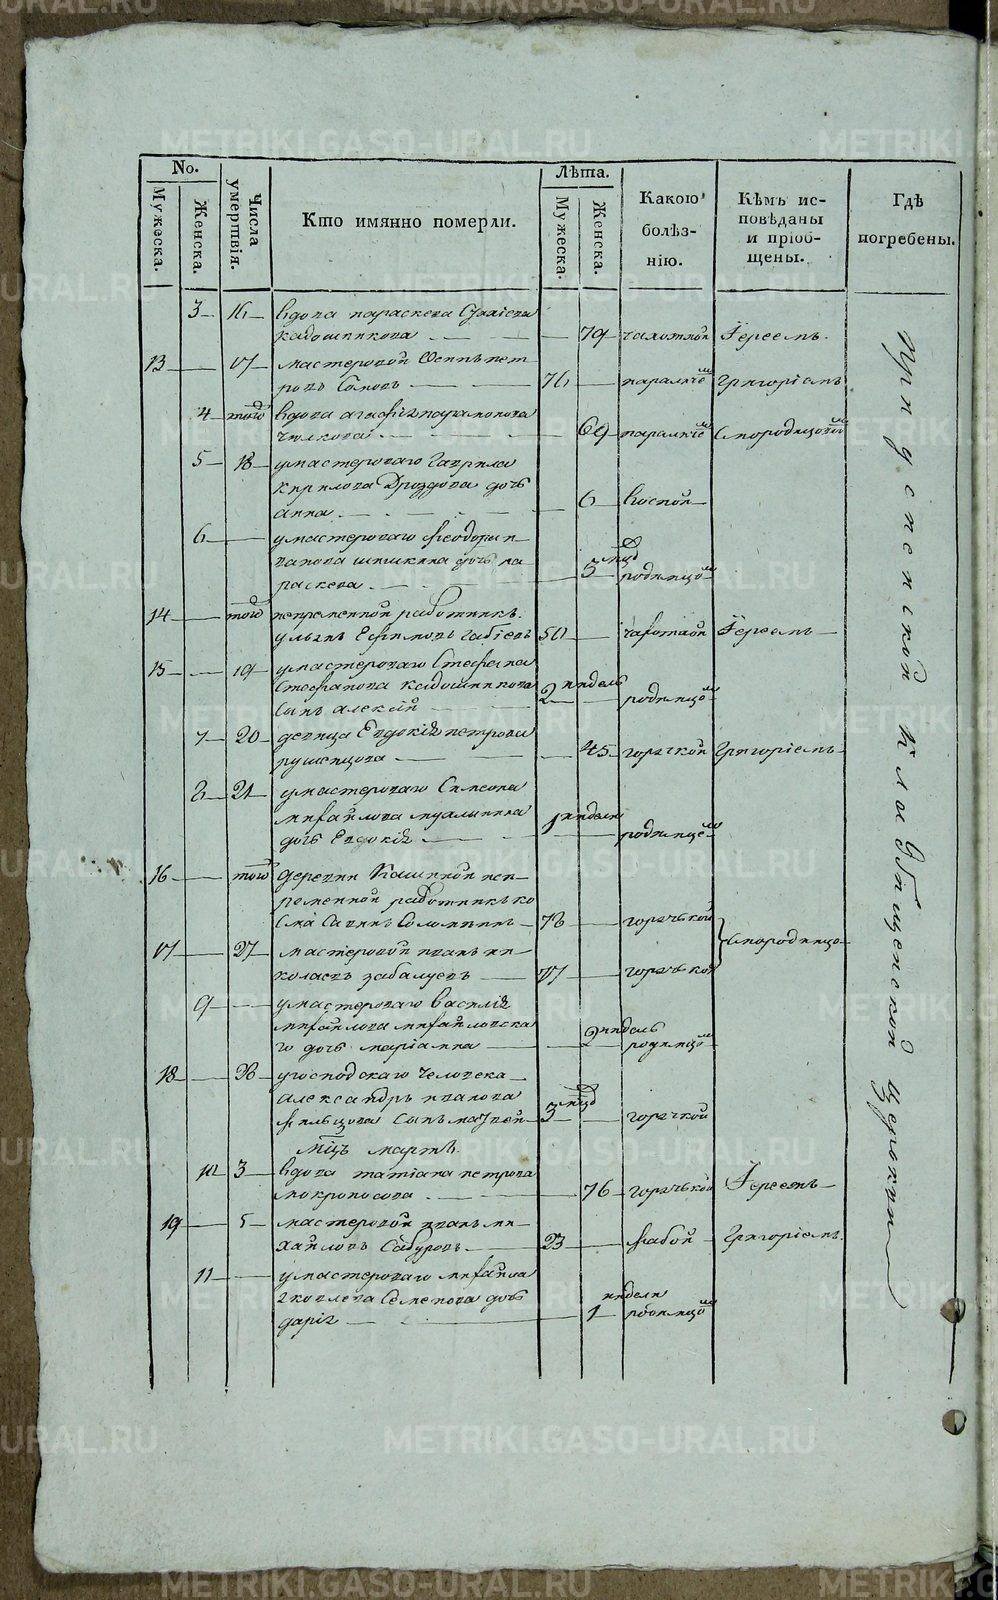 No.
Мужеска.
Женска.
Числа умертвія.
Кто имянно померли.
Лѣта.
Мужеска.
Женска.
Какою болѣз-
нію.
Кѣмъ ис-
повѣданы
и пріоб-
щены.
Гдѣ
погребены.
3 16 вдова параскева
кадошникова 79 чахоткой Іереемъ
13 17 мастеровой Осипъ пет-
ровъ 76 параличемъ Григоріемъ
4 того вдова агафія парамонова
69 параличемъ Смородинцовымъ
5 18 у мастероваго Гаврила
Кирилова Дроздова дочь
анна 6 воспой
6 у мастероваго феодора и
ванова шишкина дочь па
раскева 3 мцд родимцомъ
14 того непременной работникъ
ульянъ Ефимовъ 50 чахоткой Іереемъ
15 19 у мастероваго Стефана
Стефанова кадошникова
сынъ алексѣй 2 недель родимцомъ
7 20 девица Евдокія петрова
45 горячкой Григоріемъ
8 21 у мастероваго Симеона
михайлова
дочь Евдокія 1 недели родимцемъ
16 того деревни Кашиной неп-
ременной работникъ ко
сма Савинъ 78 горячькой
Смородинцо
17 27 мастеровой иванъ ни-
колаевъ забалуевъ 77 горячькой
9 у мастероваго василія
михайлова михайловска
го дочь маріамна 2 недель родимцомъ
18 28 у господскаго человека
александръ иванова
сынъ матвей 3 мцд горячкой
мцъ мартъ.
10 3 вдова татіана петрова
мокроносова 76 горячькой Іереемъ
19 5 мастеровой иванъ ми-
хайловъ Сабуровъ 23 Григоріемъ.
11 у мастероваго михаила
яковлева Семенова дочь
дарія 1 недели родимцомъ
при успенской кладбищенской церкви
METRIKI.GASO-URAL.RU